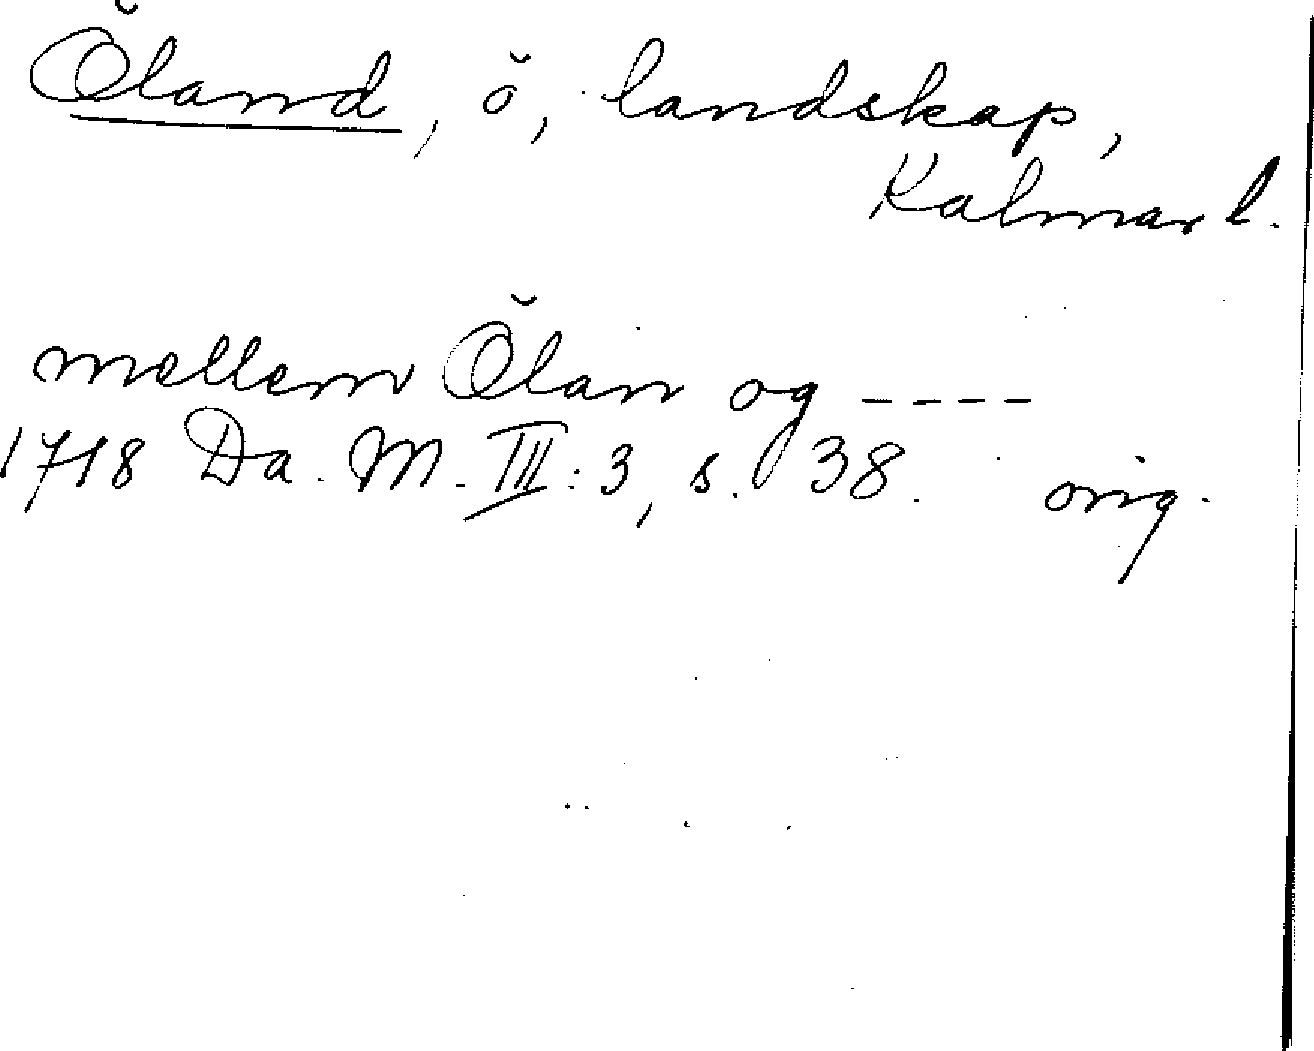 Öland, ö, landskap,
Kalmar l.
mellem Ölan og ----
1718 Da. M. III: 3, s. 38. orig.